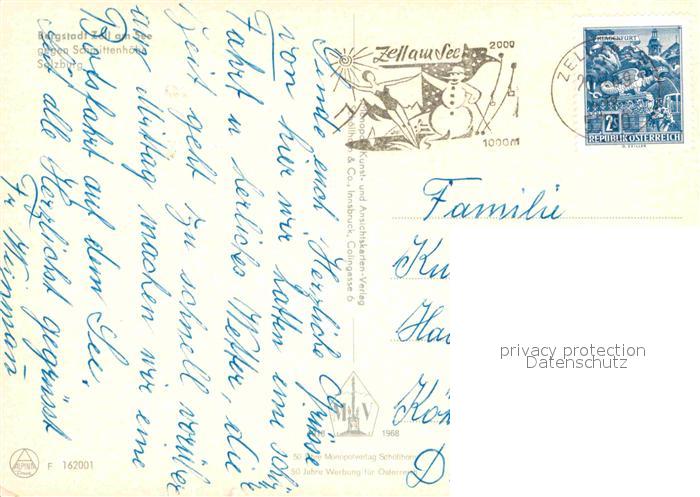 Bergstadt Zell am See
gegen Schmittenhöhe
Salzburg
Zell am See
2000
1000M
KLAGENFURT
2S
REPUBLIK ÖSTERREICH
ZELL
Sende euch Herzliche Grüsse
von hier wir hatten eine schö
Fahrt u herliches Wetter, die
Zeit geht zu schnell vorüber
am Mittag machen wir eine
Bootsfahrt auf dem See.
Seid alle Herzlichst gegrüsst
Monopol Kunst- und Ansichtskarten-Verlag
Schöllhorn & Co., Innsbruck, Colingasse 6
Familie
Ku
Ha
Kö
D
privacy protection
Datenschutz
M V
1968
50 Jahre Monopolverlag Schöllhorn
50 Jahre Werbung für Österreich
ALPINE
F 162001